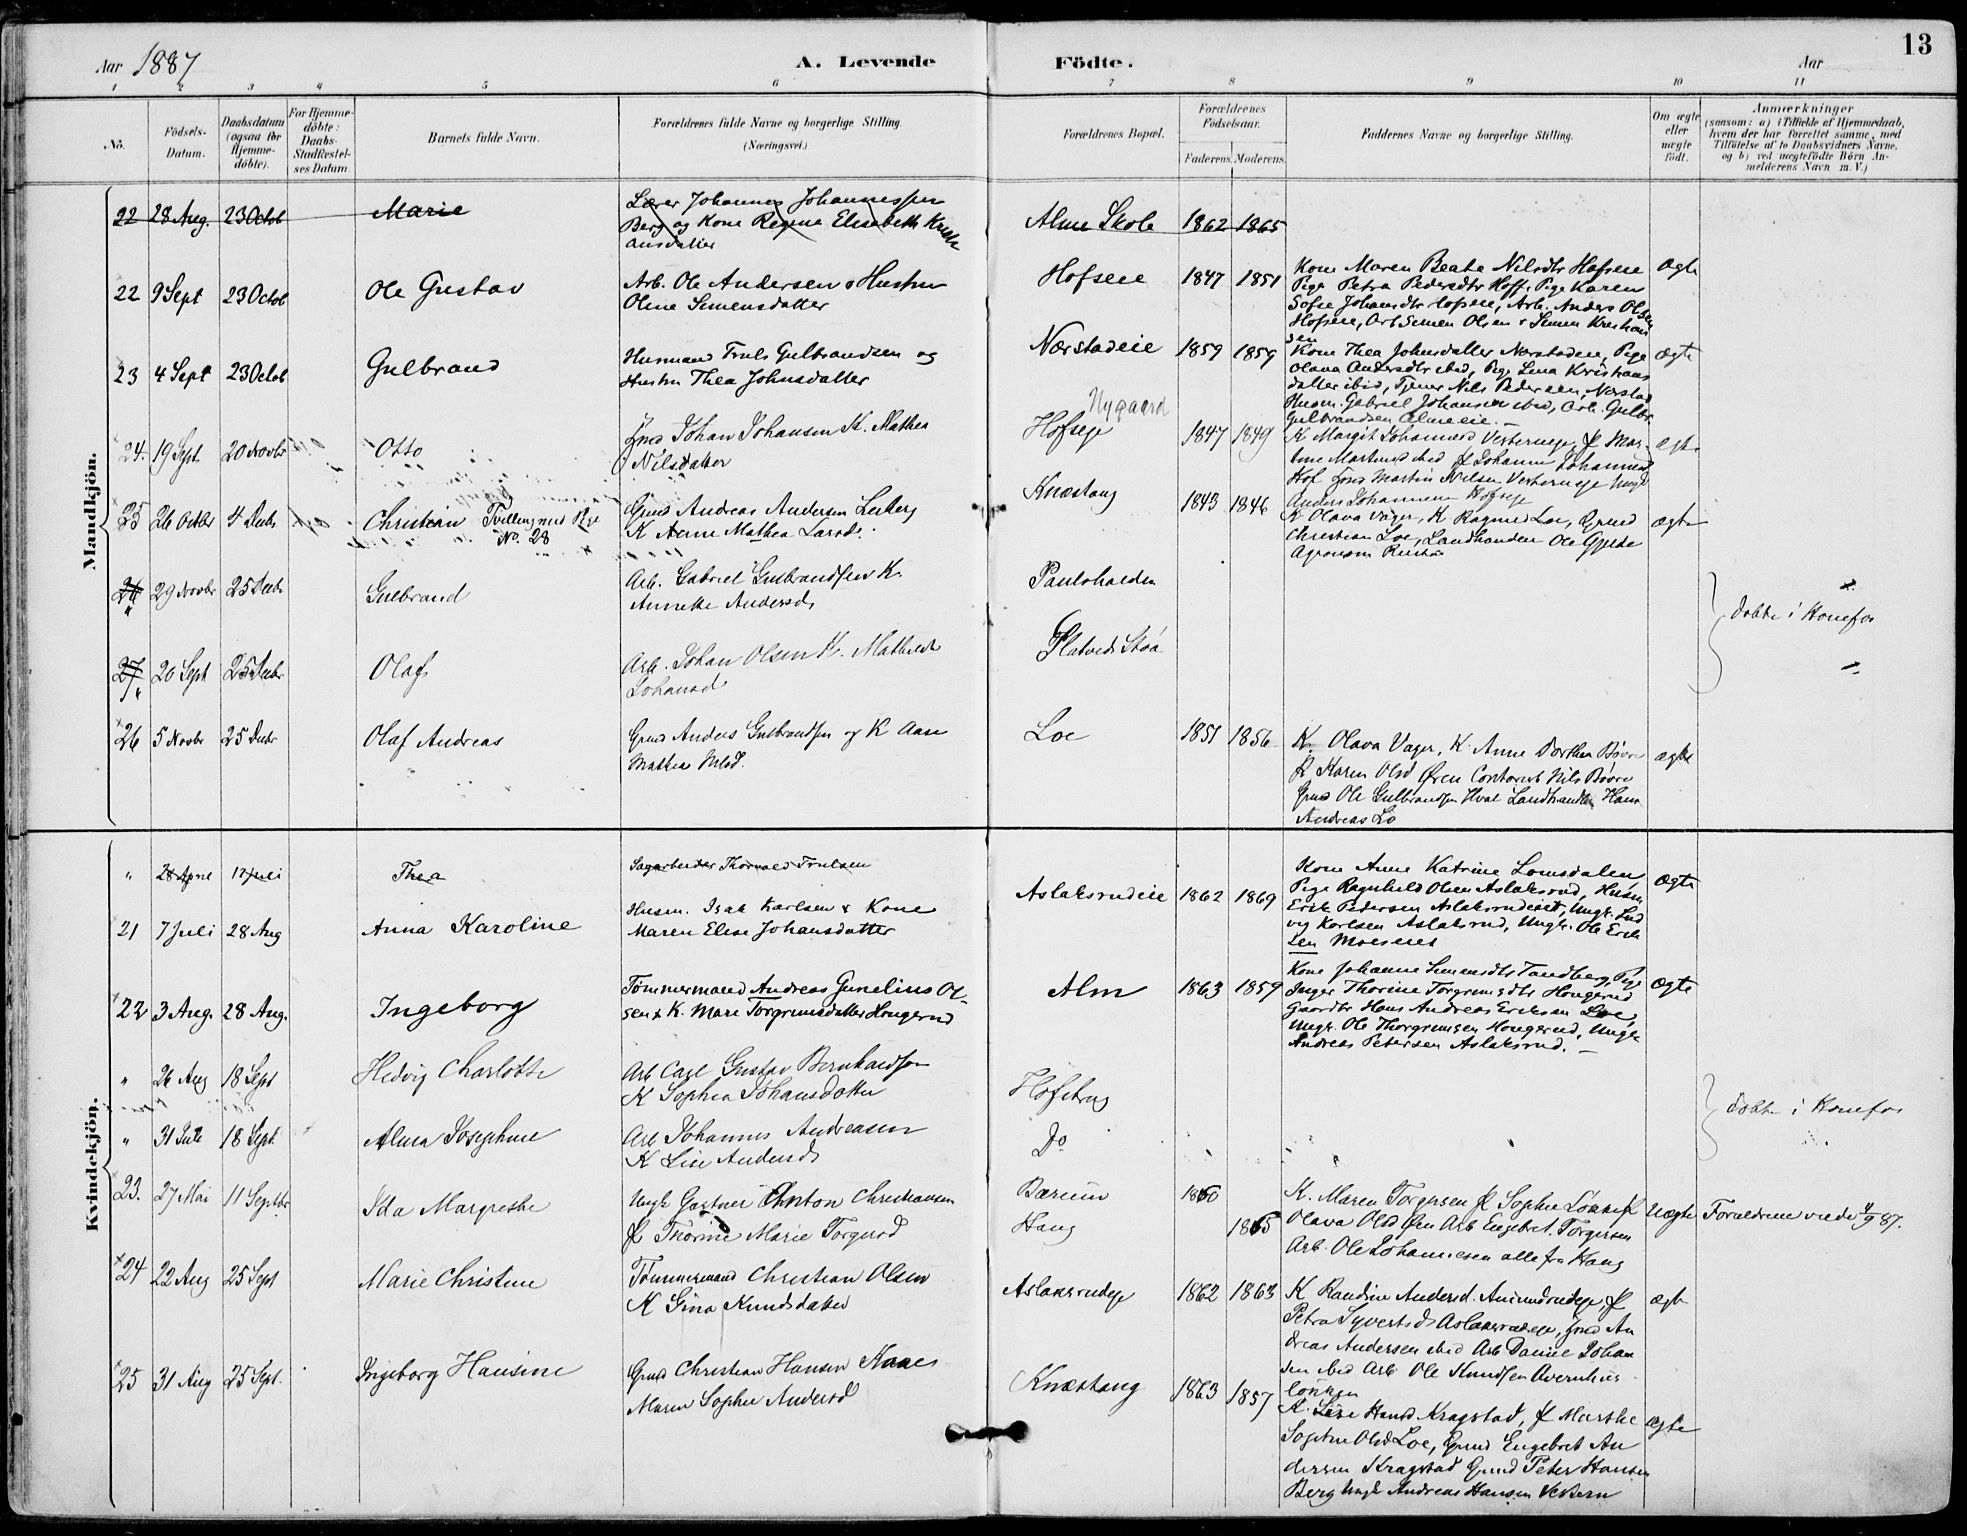 Aar 1887
A. Levende Födte.
Aar
13
1 2 3 4 5 6 7 8 9 10 11
No.
Födsels-Datum.
Daabsdatum (ogsaa for Hjemme-döbte).
For Hjemme-döbte: Daabs-Stadfæstel-ses Datum
Barnets fulde Navn.
Forældrenes fulde Navne og borgerlige Stilling.
(Næringsvei.)
Forældrenes Bopæl.
Forældrenes Födselsaar.
Faderens. Moderens.
Faddernes Navne og borgerlige Stilling.
Om ægte eller uægte födt.
Anmærkninger
(saasom: a) i Tilfælde af Hjemmedaab,
hvem der har forrettet samme, med
Tilföielse af to Daabsvidners Navne.
og b) ved uægtefödte Börn An-
melderens Navn m. V.)
Mandkjön.
22 28 Aug. 23 Octob Marie
Lærer Johannes Johannessen
Berg og Kone Regine Elisabeth Kristi
ansdatter
Alm Skole 1862 1865
22 9 Sept 23 Octob Ole Gustav
Arb. Ole Andersen & Hustru
Oline Simensdatter
Hofseie 1847 1851
Kone Maren Beate Nilsdtr Hofseie
Pige Petra Pedersdtr Hoff, Pige Karen
Sofie Johansdtr Hofseie, Arb. Anders Olsen
Hofseie, Arb Simen Olsen & Simen Kristian
sen
Ægte
23 4 Sept 23 Octob Gulbrand
Husmand Truls Gulbrandsen og
Hustru Thea Johnsdatter
Nærstadeie 1859 1859
Kone Thea Johnsdatter Nærstadeie, Pige
Olava Andersdtr ibid, Pige Lina Kristians
datter ibid, Tjener Nils Pedersen, Nærstad
Husm. Gabriel Johansen ibid, Arb. Gulbr.
Gulbrandsen Almeie. –
Ægte
24. 19 Sept. 20 Novbr Otto
Johan Johansen K. Mathea
Nilsdatter
Nygaard
Hofseje 1847 1849
K Margit Johannesd Vesterneje, P Mar-
Hof Martin Nilsen Vesterneje Ungk
Anders Johannesen Hofseje
ægte
25 26 Octbr 4 Decb Christian Tvilling med Pige
No. 28
Gmd Andreas Andersen Leeberg
K Anne Mathea Larsd.
Knæstang 1843 1846
K Olava Vager, K Ragna Loe, Gmd
Christian Loe, Landhandler Ole Gjelde
Agronom
ægte
26 29 Novbr 25 Decb Gulbrand
Arb. Gabriel Gulbrandsen K.
Annette Andersd
Paulshalden
döbte i Hönefos
27 20 Sept 25 Decbr Olaf
Arb. Johan Olsen K. Mathilde
Johansd
26 5 Novbr 25 Decbr Olaf Andreas
Gmd Anders Gulbrandsen og K Aase
Mathea
Loe 1851 1856
K. Olava Vager, K. Anne Dorthea Bøvre
P Karen Olsd Øren Contorist Nils Bøvre
Gmd Ole Gulbrandsen Hval Landhandler Hans
Andreas Lo
ægte
Kvindekjön.
" 28 April 17 Juli Thea
Sagarbeider Thorvald Trulsen
21 7 Juli 28 Aug Anna Karoline
Husm. Isak Karlsen & Kone
Maren Elise Johansdatter
Aslaksrudeie 1862 1869
Kone Anne Katrine Lomsdalen
Pige Ragnhild Olsen Aslaksrud, Husm
Erik Pedersen Aslaksrudeiet, Ungk. Lud
vig Karlsen Aslaksrud, Ungk. Ole Erik
sen Moeseiet
Ægte
22 3 Aug. 28 Aug. Ingeborg
Tömmermand Andreas Gunelius Ol-
sen & K. Mari Torgrimsdatter Hongerud
Alm 1863 1859
Kone Johanne Simensdtr Tandberg, Pige
Inger Thorine Torgrimsdtr Hongerud
Gaardbr Hans Andreas Eriksen Loe,
Ungk. Ole Thorgrimsen Hongerud, Ungk
Andreas Petersen Aslaksrud. –
Ægte
" 26 Aug 18 Sept Hedvig Charlotte
Arb Carl Gustav Bernhardsen
K Sophia Johansdatter
Hofstrug
döbte i Hönefos
" 31 Juli 18 Sept Alma Josephine
Arb Johannes Andreasen
K Lise Andersd
Do
23. 27 Mai 11 Septbr Ida Margrethe
Ungk Gartner Anton Christiansen
P Thorine Marie Torgersd
Bærum 1860
Haug 1865
K. Maren Torgersen P Sophie Lökke P
Olava Olsd Arb Engebret Torgersen
Arb. Ole Johannesen alle fra Haug
Uægte
Forældrene viede 4/9 87.
24 22 Aug 25 Sept Marie Christine
Tömmermand Christian Olsen
K Gina Knudsdatter
Aslaksrudeje 1862 1863
K Randine Andersd. Amundrudeje, P
Petra Syvertsd Aslaksrudeje, An
dreas Andersen ibid Arb Daniel Johan
sen ibid Arb Ole Knudsen
lökken
ægte
25 31 Aug 25 Sept. Ingeborg Hansine
Gmd Christian Hansen
Maren Sophie Andersd
Knæstang 1863 1857
K. Lise Hansd Kragstad, P Marthe
Sophie Olsd Loe, Gmd Engebret An
dersen Kragstad Gmd Peter Hansen
Berg Ungk Andreas Hansen Vestern
ægte